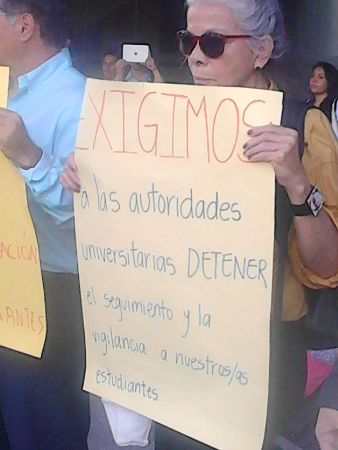 EXIGIMOS
a las autoridades
universitarias DETENER
el seguimiento y la
vigilancia a nuestros/as
estudiantes